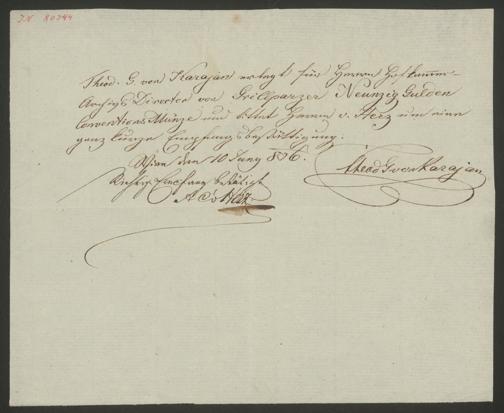 I.N. 80744
Theod. G. von Karajan erlegt für Herrn Hofkammer-
Archivs Director von Grillparzer Neunzig Gulden
Conventions Münze und bittet Herrn v. um eine
ganz kurze Empfangsbestättigung.
Wien den 10 Juny 836.
Theod G von Karajan
Richtigen Empfang bestätigt